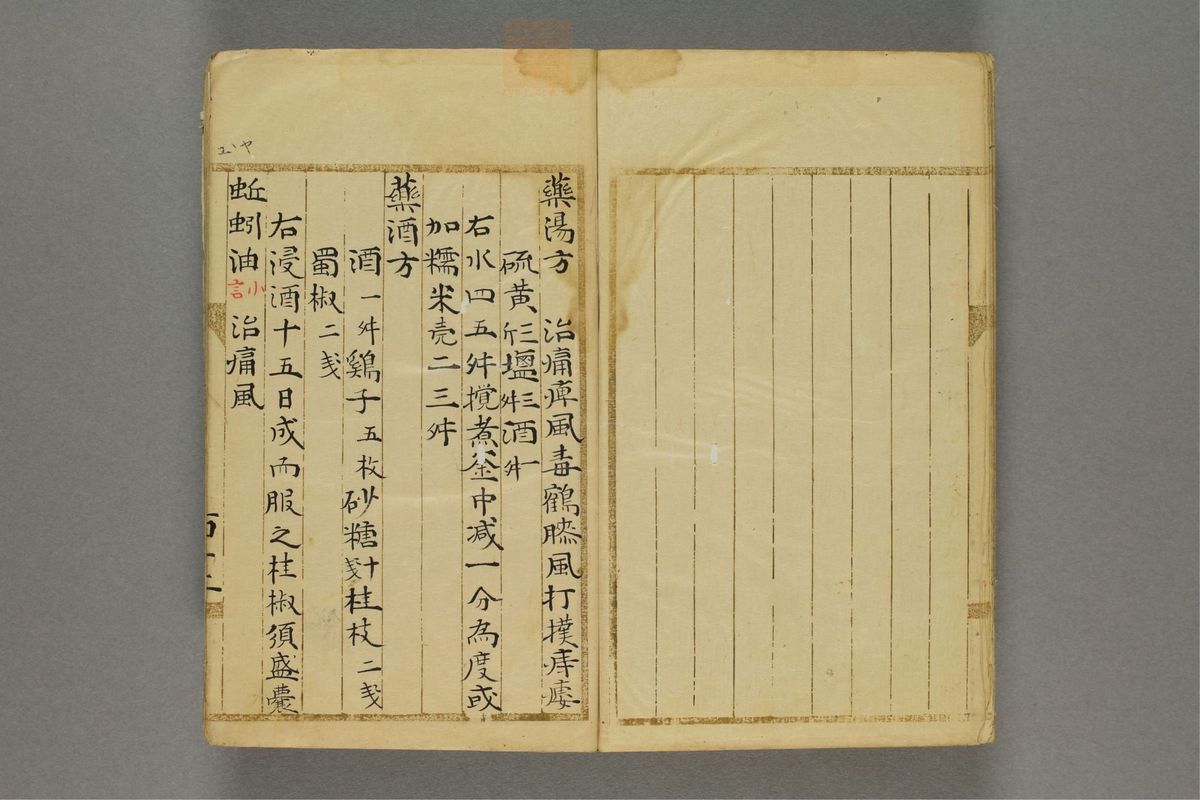 藥湯方　治痛痺風毒鶴膝風打撲痿
硫黃斤三塩舛三酒舛一
右水四五舛撹煮釜中减一分為度或
加糯米壳二三舛
藥酒方
酒一舛鷄子五枚砂糖十戔桂枝二戔
蜀椒二戔
右浸酒十五日成而服之桂椒須盛囊
蚯蚓油小言治痛風